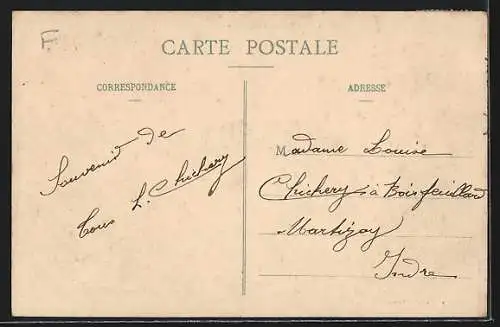 F
CARTE POSTALE
CORRESPONDANCE
Souvenir de
tous L. Chichery
ADRESSE
Madame Louise
Chichery à Boisfeuillard
Martizay
Indre